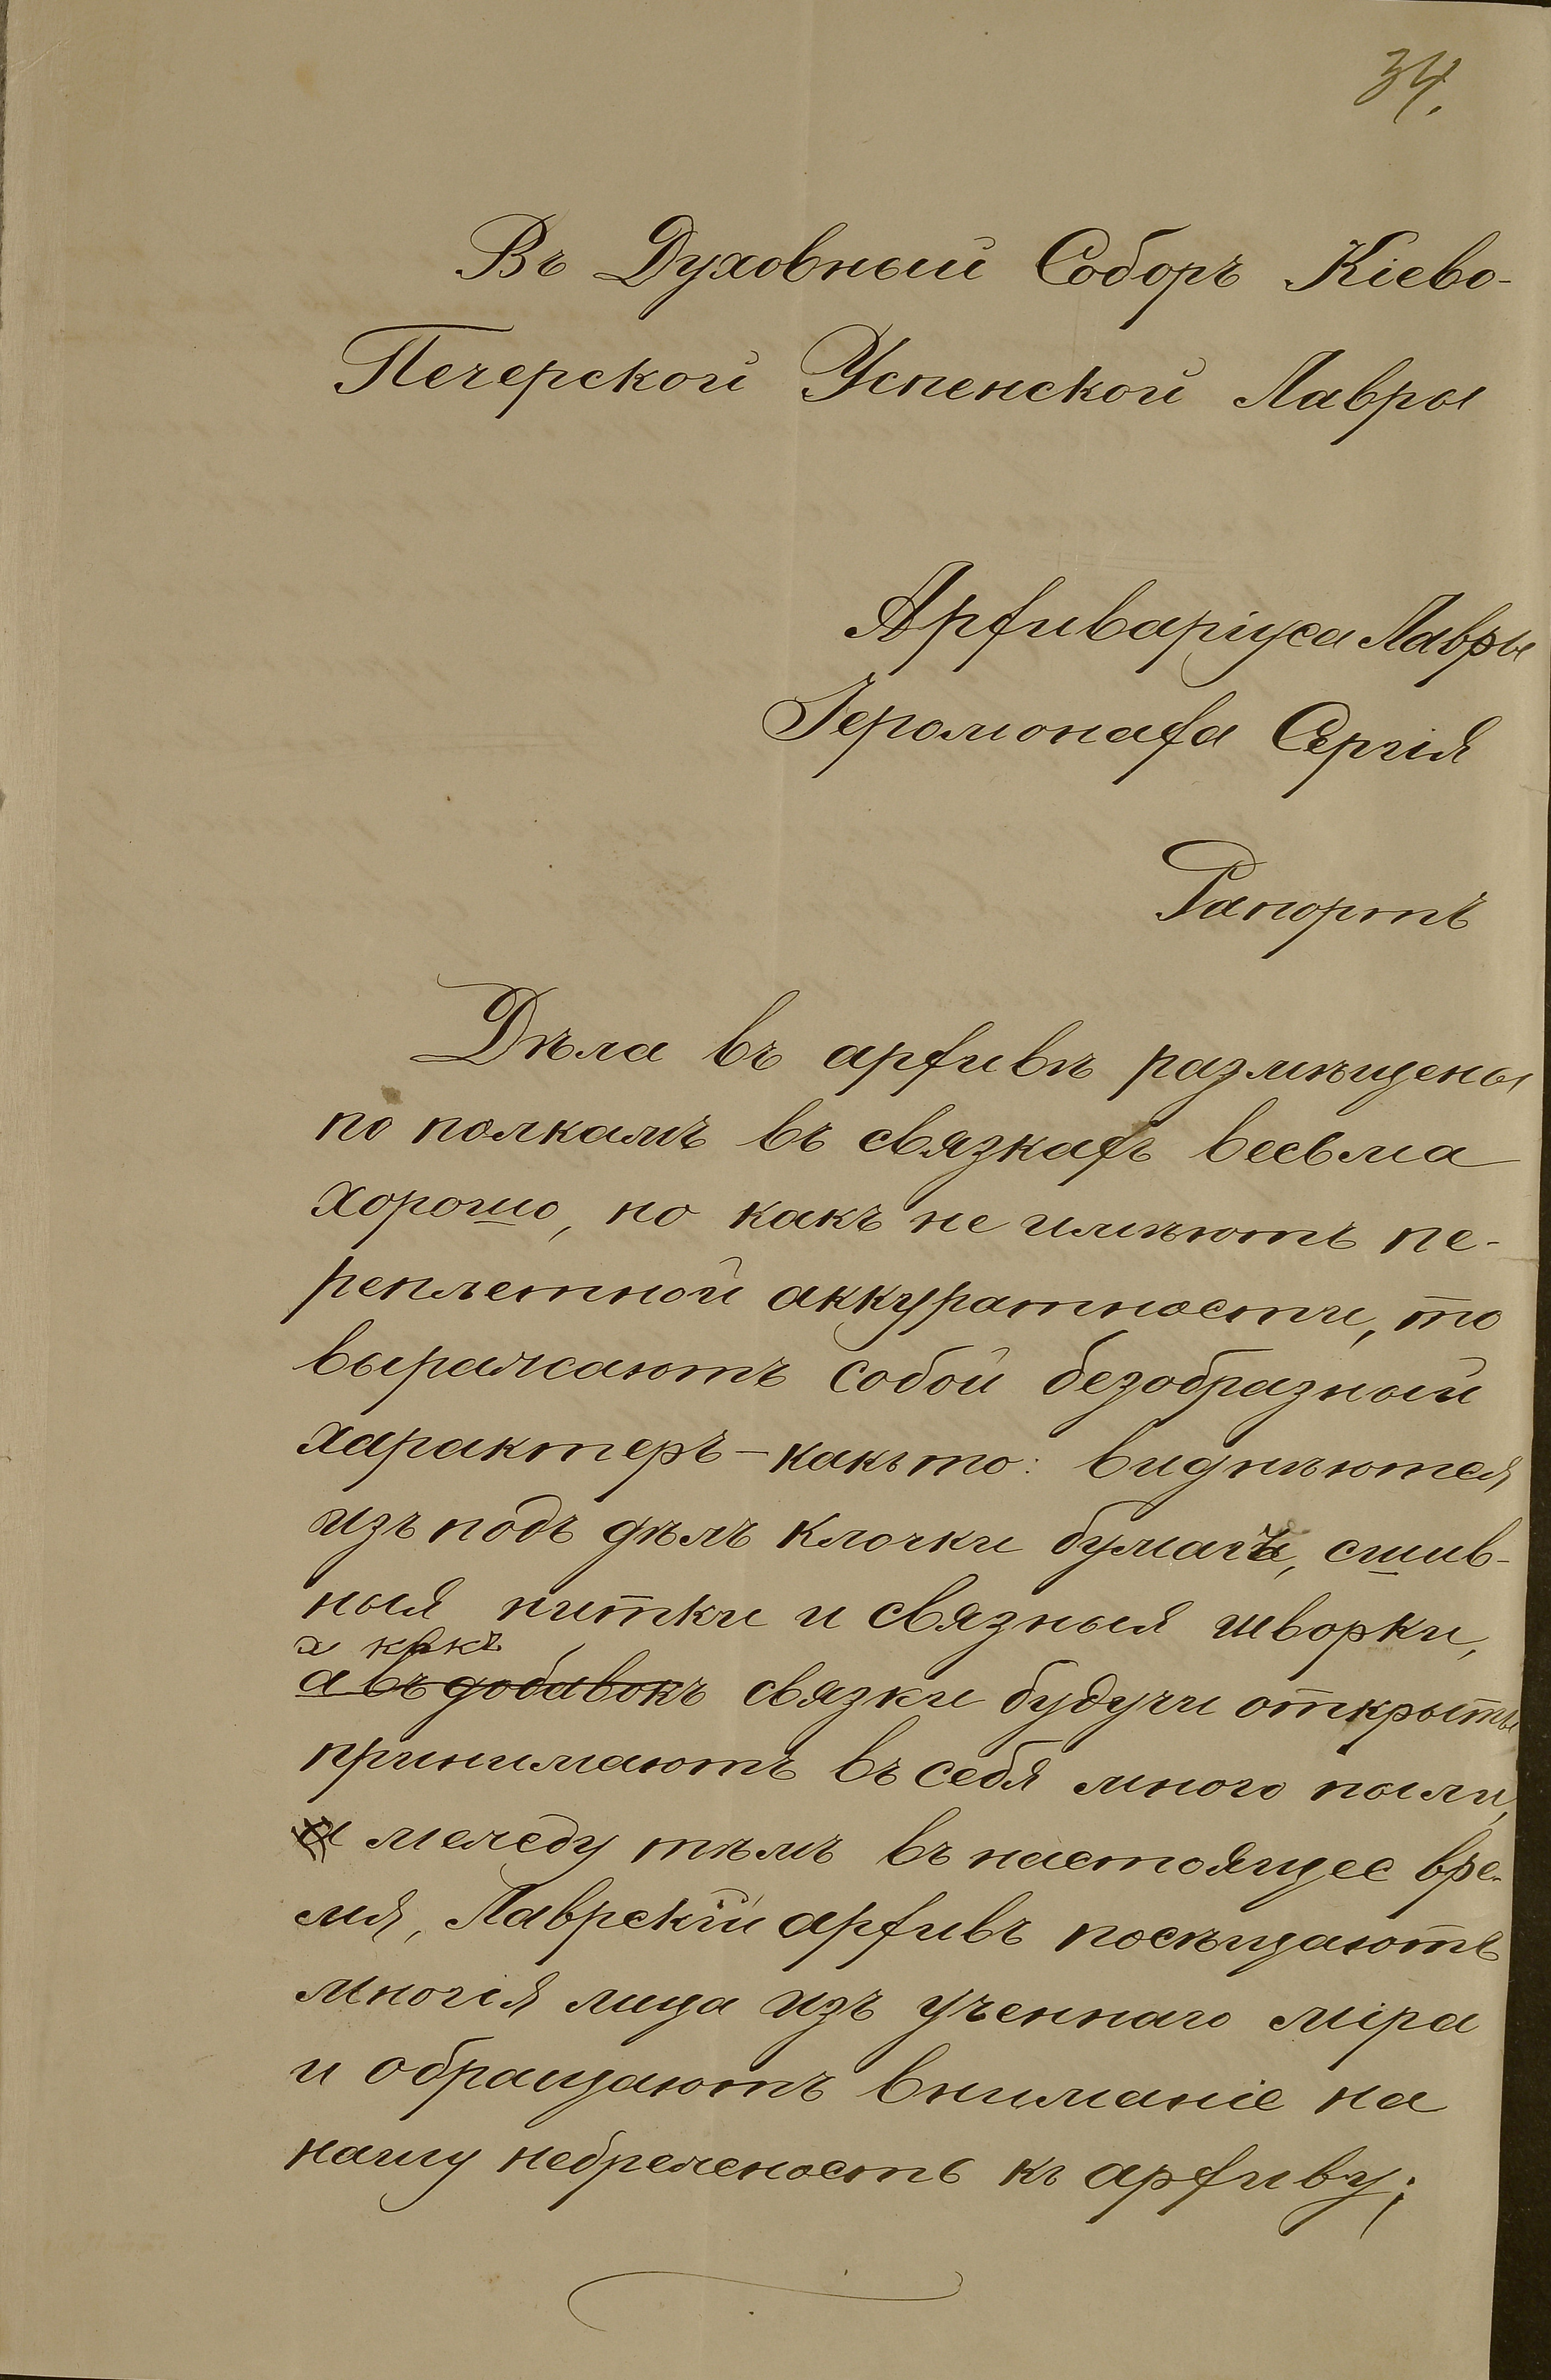 34.
Въ Духовный Соборъ Кіево-
Печерской Успенской Лавры
Архиваріуса Лавры
Іеромонаха Сергія
Рапортъ
Дѣла въ архивѣ размѣщены
по полкамъ въ связкахъ весьма
хорошо, но какъ не имѣютъ пе-
реплетной аккуратности, то
выражаютъ собой безобразный
характеръ – какъ то: виднѣются
изъ подъ дѣлъ клочки бумагъ, сшив-
ныя нитки и связныя шворки,
а какъ
а въ добавокъ связки будучи открыты
принимаютъ въ себя много пыли,
и между тѣмъ въ настоящее вре-
мя, Лаврскій архивъ посѣщаютъ
многія лица изъ ученнаго міра
и обращаютъ вниманіе на
нашу небрежность къ архиву;